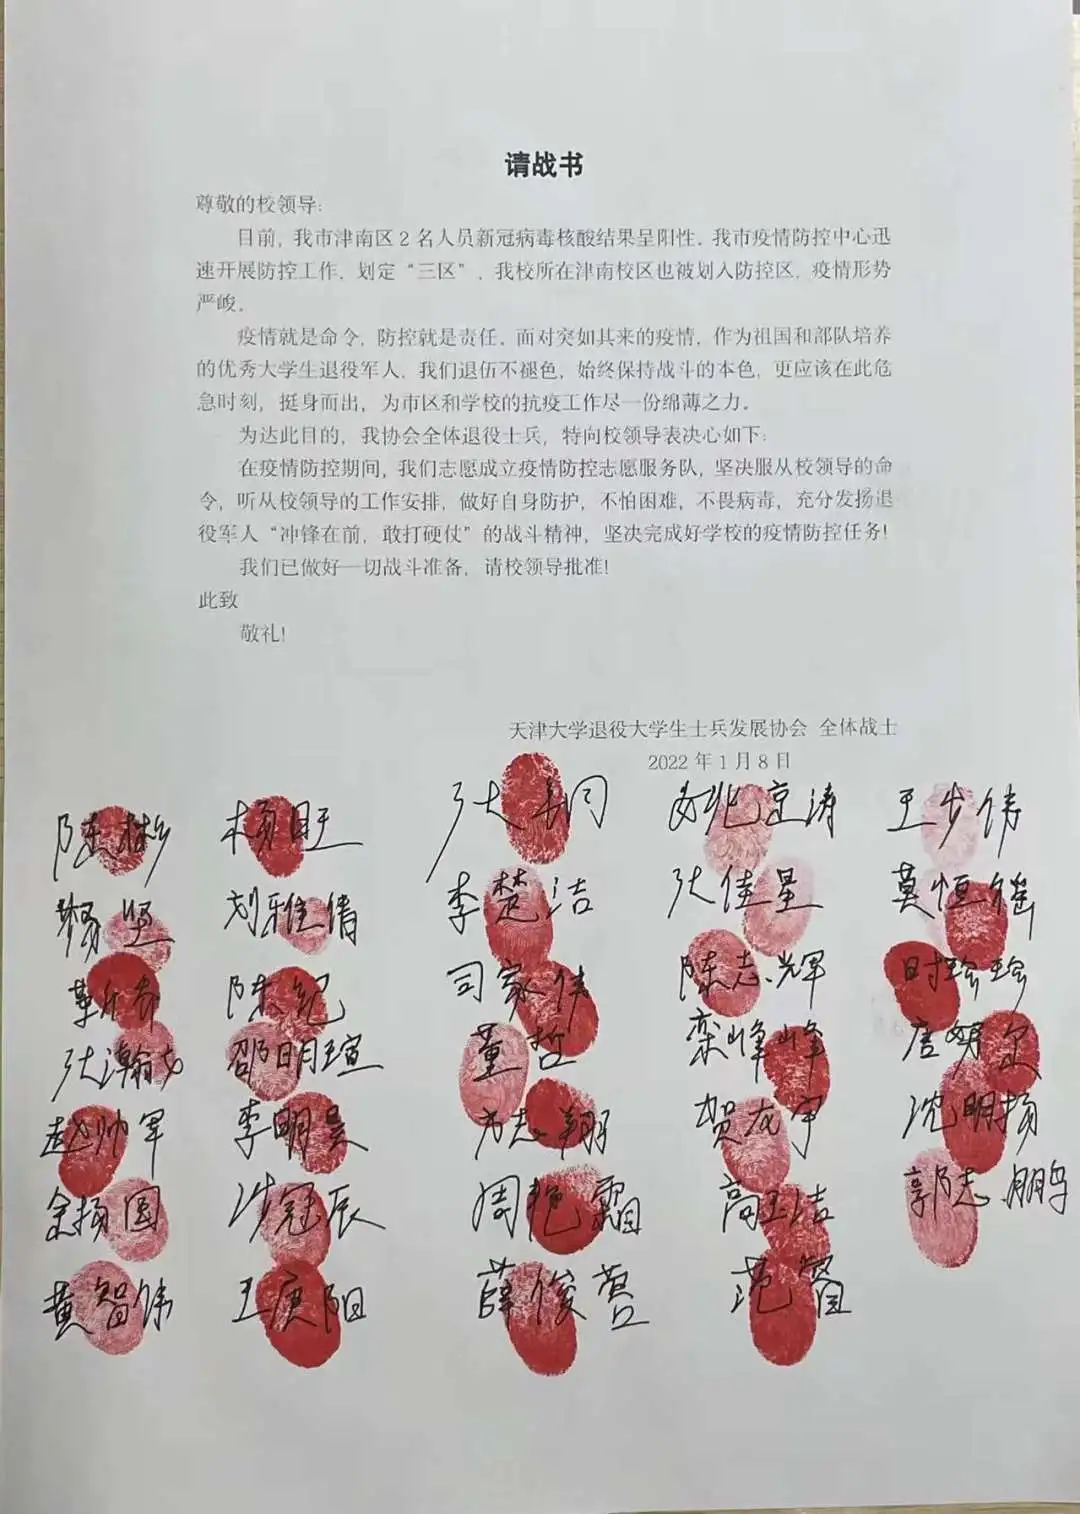 请战书
尊敬的校领导:
目前，我市津南区2名人员新冠病毒核酸结果呈阳性。我市疫情防控中心迅
速开展防控工作，划定“三区”，我校所在津南校区也被划入防控区，疫情形势
严峻。
疫情就是命令，防控就是责任。面对突如其来的疫情，作为祖国和部队培养
的优秀大学生退役军人，我们退伍不褪色，始终保持战斗的本色，更应该在此危
急时刻，挺身而出，为市区和学校的抗疫工作尽一份绵薄之力。
为达此目的，我协会全体退役士兵，特向校领导表决心如下:
在疫情防控期间，我们志愿成立疫情防控志愿服务队，坚决服从校领导的命
令，听从校领导的工作安排，做好自身防护，不怕困难，不畏病毒，充分发扬退
役军人“冲锋在前，敢打硬仗”的战斗精神，坚决完成好学校的疫情防控任务!
我们已做好一切战斗准备，请校领导批准!
此致
敬礼!
天津大学退役大学生士兵发展协会 全体战士
2022年1月8日
陈彬 杨旺 王步伟
杨坚 刘雅倩 李楚洁 张佳星
陈纪 司家伟 陈志辉 时珍珍
邵明瑄 董哲 栾峰峰
赵帅军 李明昊 贺友宇 沈明扬
余扬图 周艳霜 高玉洁 郭志鹏
黄智伟 王庚阳 薛俊营